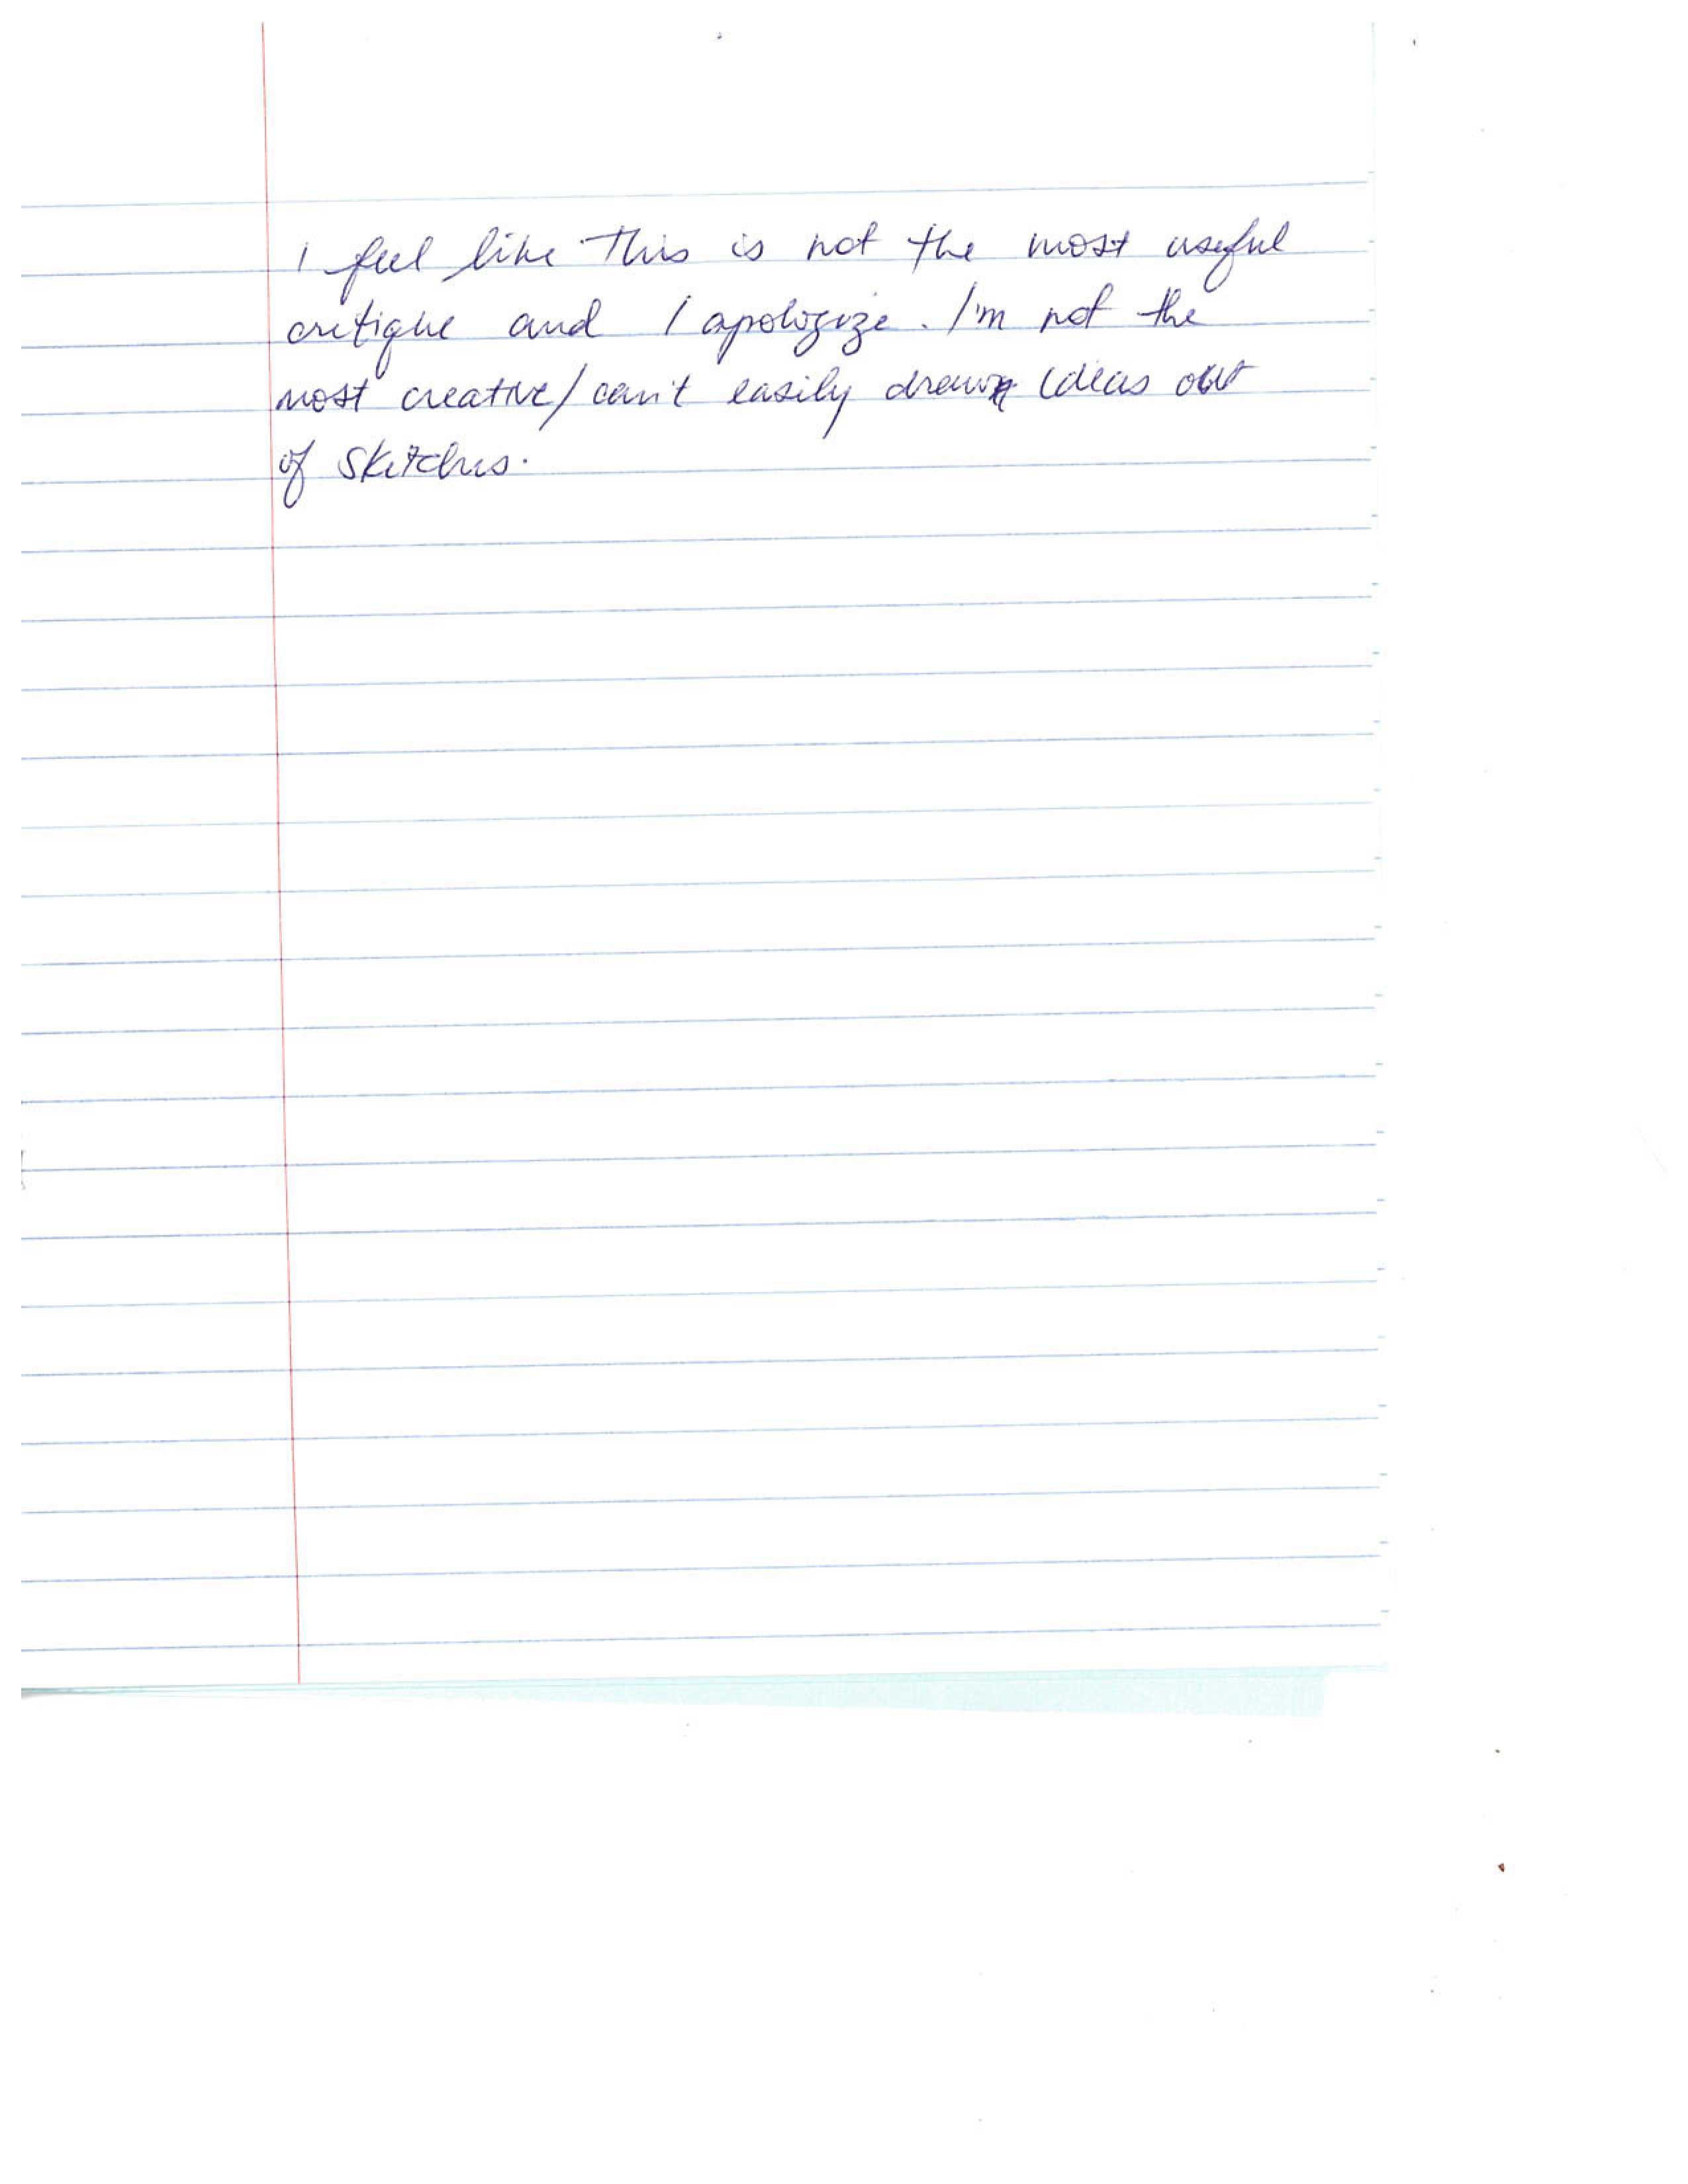 I feel like This is not the most useful
critique and I apologize. I'm not the
most creative/can't easily draw ideas out
of sketches.